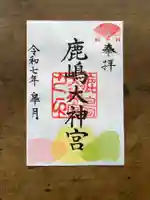 奉拝
鹿嶋大神宮
令和七年 皐月